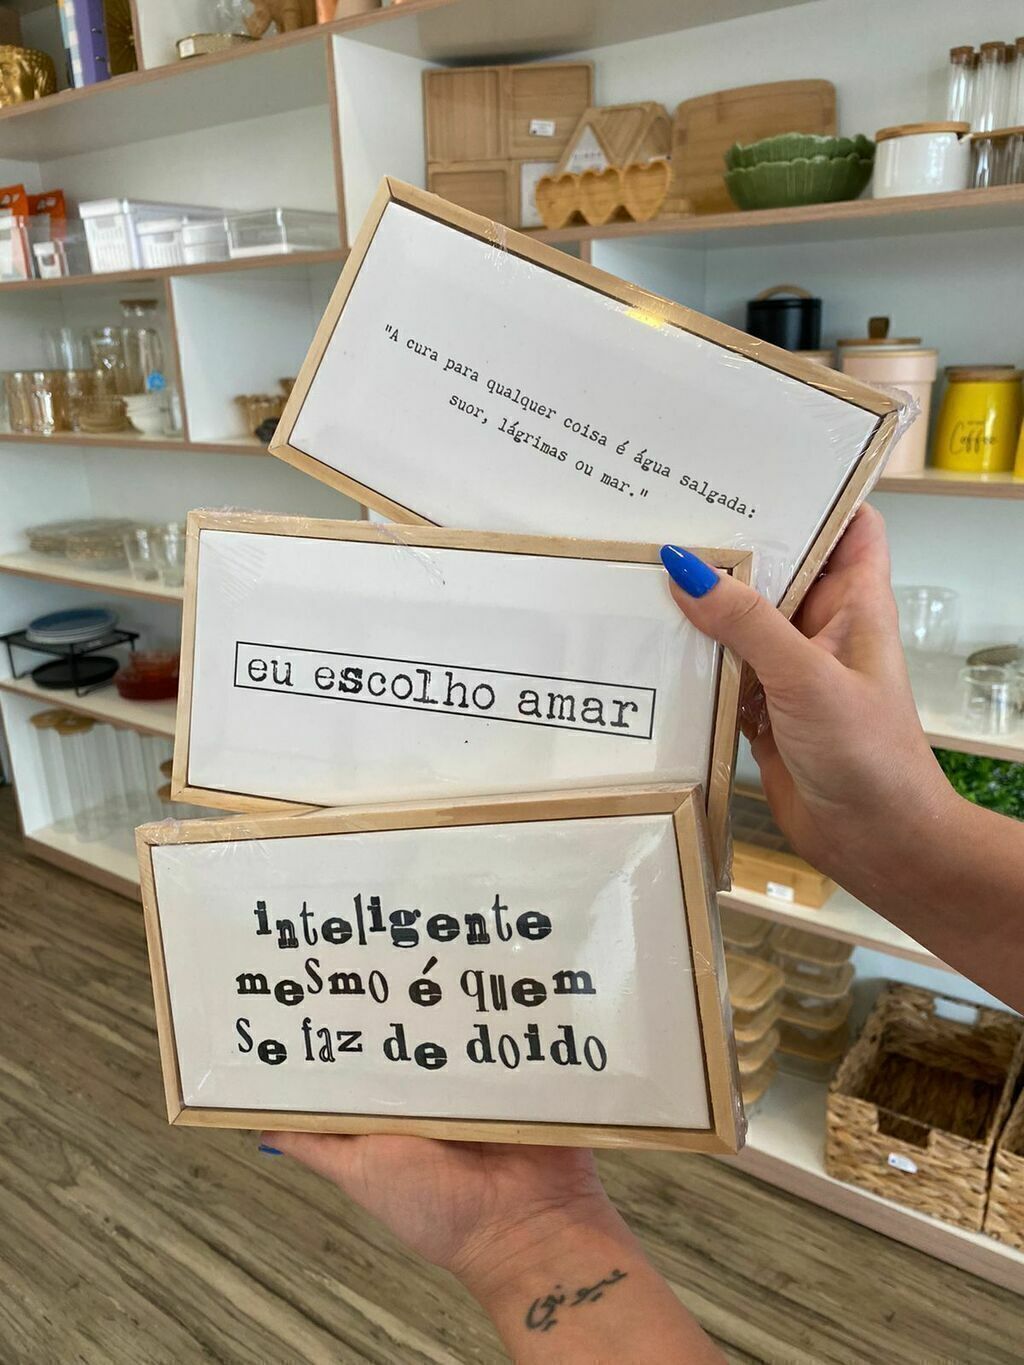 "A cura para qualquer coisa é água salgada:
suor, lágrimas ou mar."
eu escolho amar
inteligente
mesmo é quem
se faz de doido
Coffee